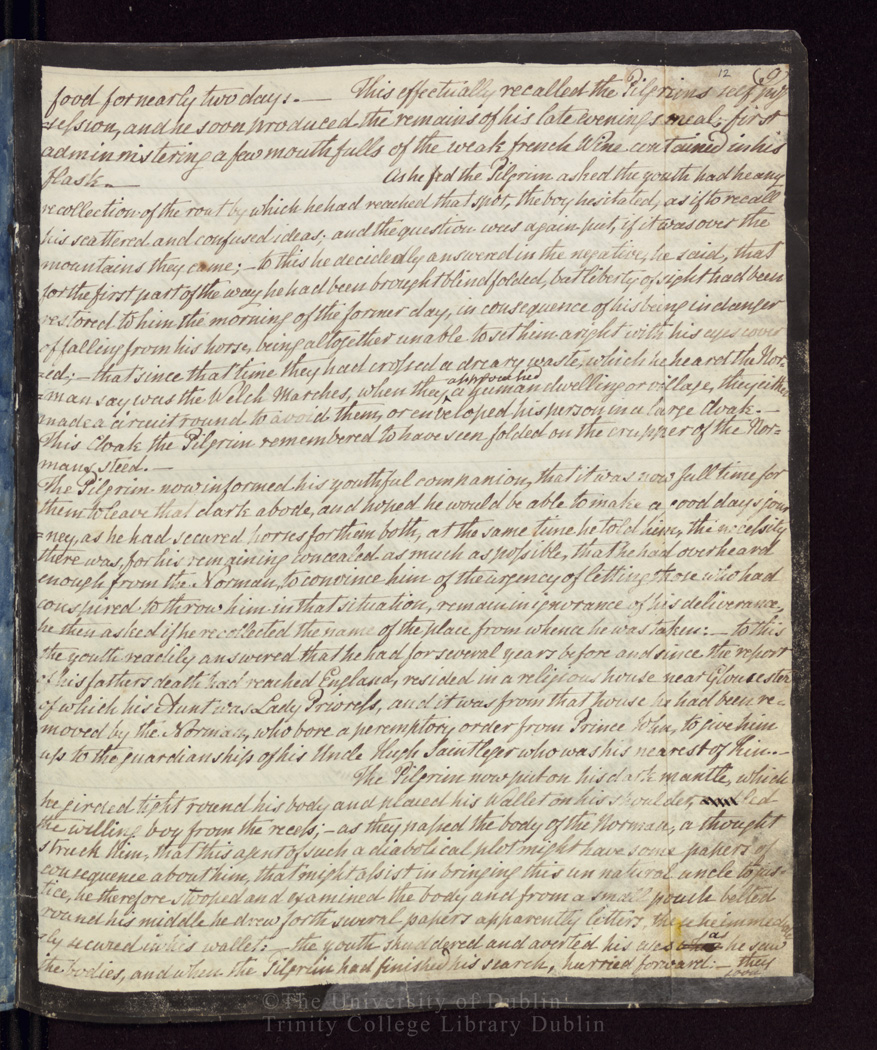 12 (9)
food for nearly two days. — This effectually recalled the Pilgrims self pos
=session, and he soon produced the remains of his late evenings meal; first
administering a few mouthfulls of the weak french Wine contained in his
flask. — As he fed the Pilgrim asked the youth had he any
recollection of the rout by which he had reached that spot, the boy hesitated, as if to recall
his scattered and confused ideas; and the question was again put, if it was over the
mountains they came; — to this he decidedly answered in the negative, he said, that
for the first part of the way he had been brought blindfolded, but liberty of sight had been
restored to him the morning of the former day, in consequence of his being in danger
of falling from his horse, being altogether unable to set him aright with his eyes cover
=ed; — that since that time they had crossed a dreary waste, which he heard the Nor=
=man say was the Welch Marches, when they approached a human dwelling or village, they either
made a circuit round to avoid them, or enveloped his person in a large Cloak. —
This Cloak the Pilgrim remembered to have seen folded on the crupper of the Nor=
mans steed. —
The Pilgrim now informed his youthful companion, that it was now full time for
them to leave that dark abode, and hoped he would be able to make a good days jour
=ney, as he had secured horses for them both, at the same time he told him, the necessity
there was, for his remaining concealed as much as possible, that he had overheard
enough from the Norman, to convince him of the urgency of letting those who had
conspired to throw him in that situation, remain in ignorance of his deliverance,
he then asked if he recollected the name of the place from whence he was taken: — to this
the youth readily answered that he had for several years before and since the report
of his fathers death had reached England, resided in a religious house near Gloucester
of which his Aunt was Lady Prioress, and it was from that house he had been re=
moved by the Norman, who bore a peremptory order from Prince John, to give him
up to the guardianship of his Uncle Hugh Saintleger who was his nearest of kin. —
The Pilgrim now put on his dark mantle, which
he girded tight round his body and placed his Wallet on his shoulder, led
the willing boy from the recess; — as they passed the body of the Norman, a thought
struck him, that this agent of such a diabolical plot might have some papers of
consequence about him, that might assist in bringing this unnatural uncle to jus=
tice, he therefore stooped and examined the body and from a small pouch belted
round his middle he drew forth several papers apparently letters, these he immediate
=ly secured in his wallet; — the youth shuddered and averted his eyes as he saw
the bodies, and when the Pilgrim had finished his search, hurried forward: — they
soon
©The University of Dublin
Trinity College Library Dublin